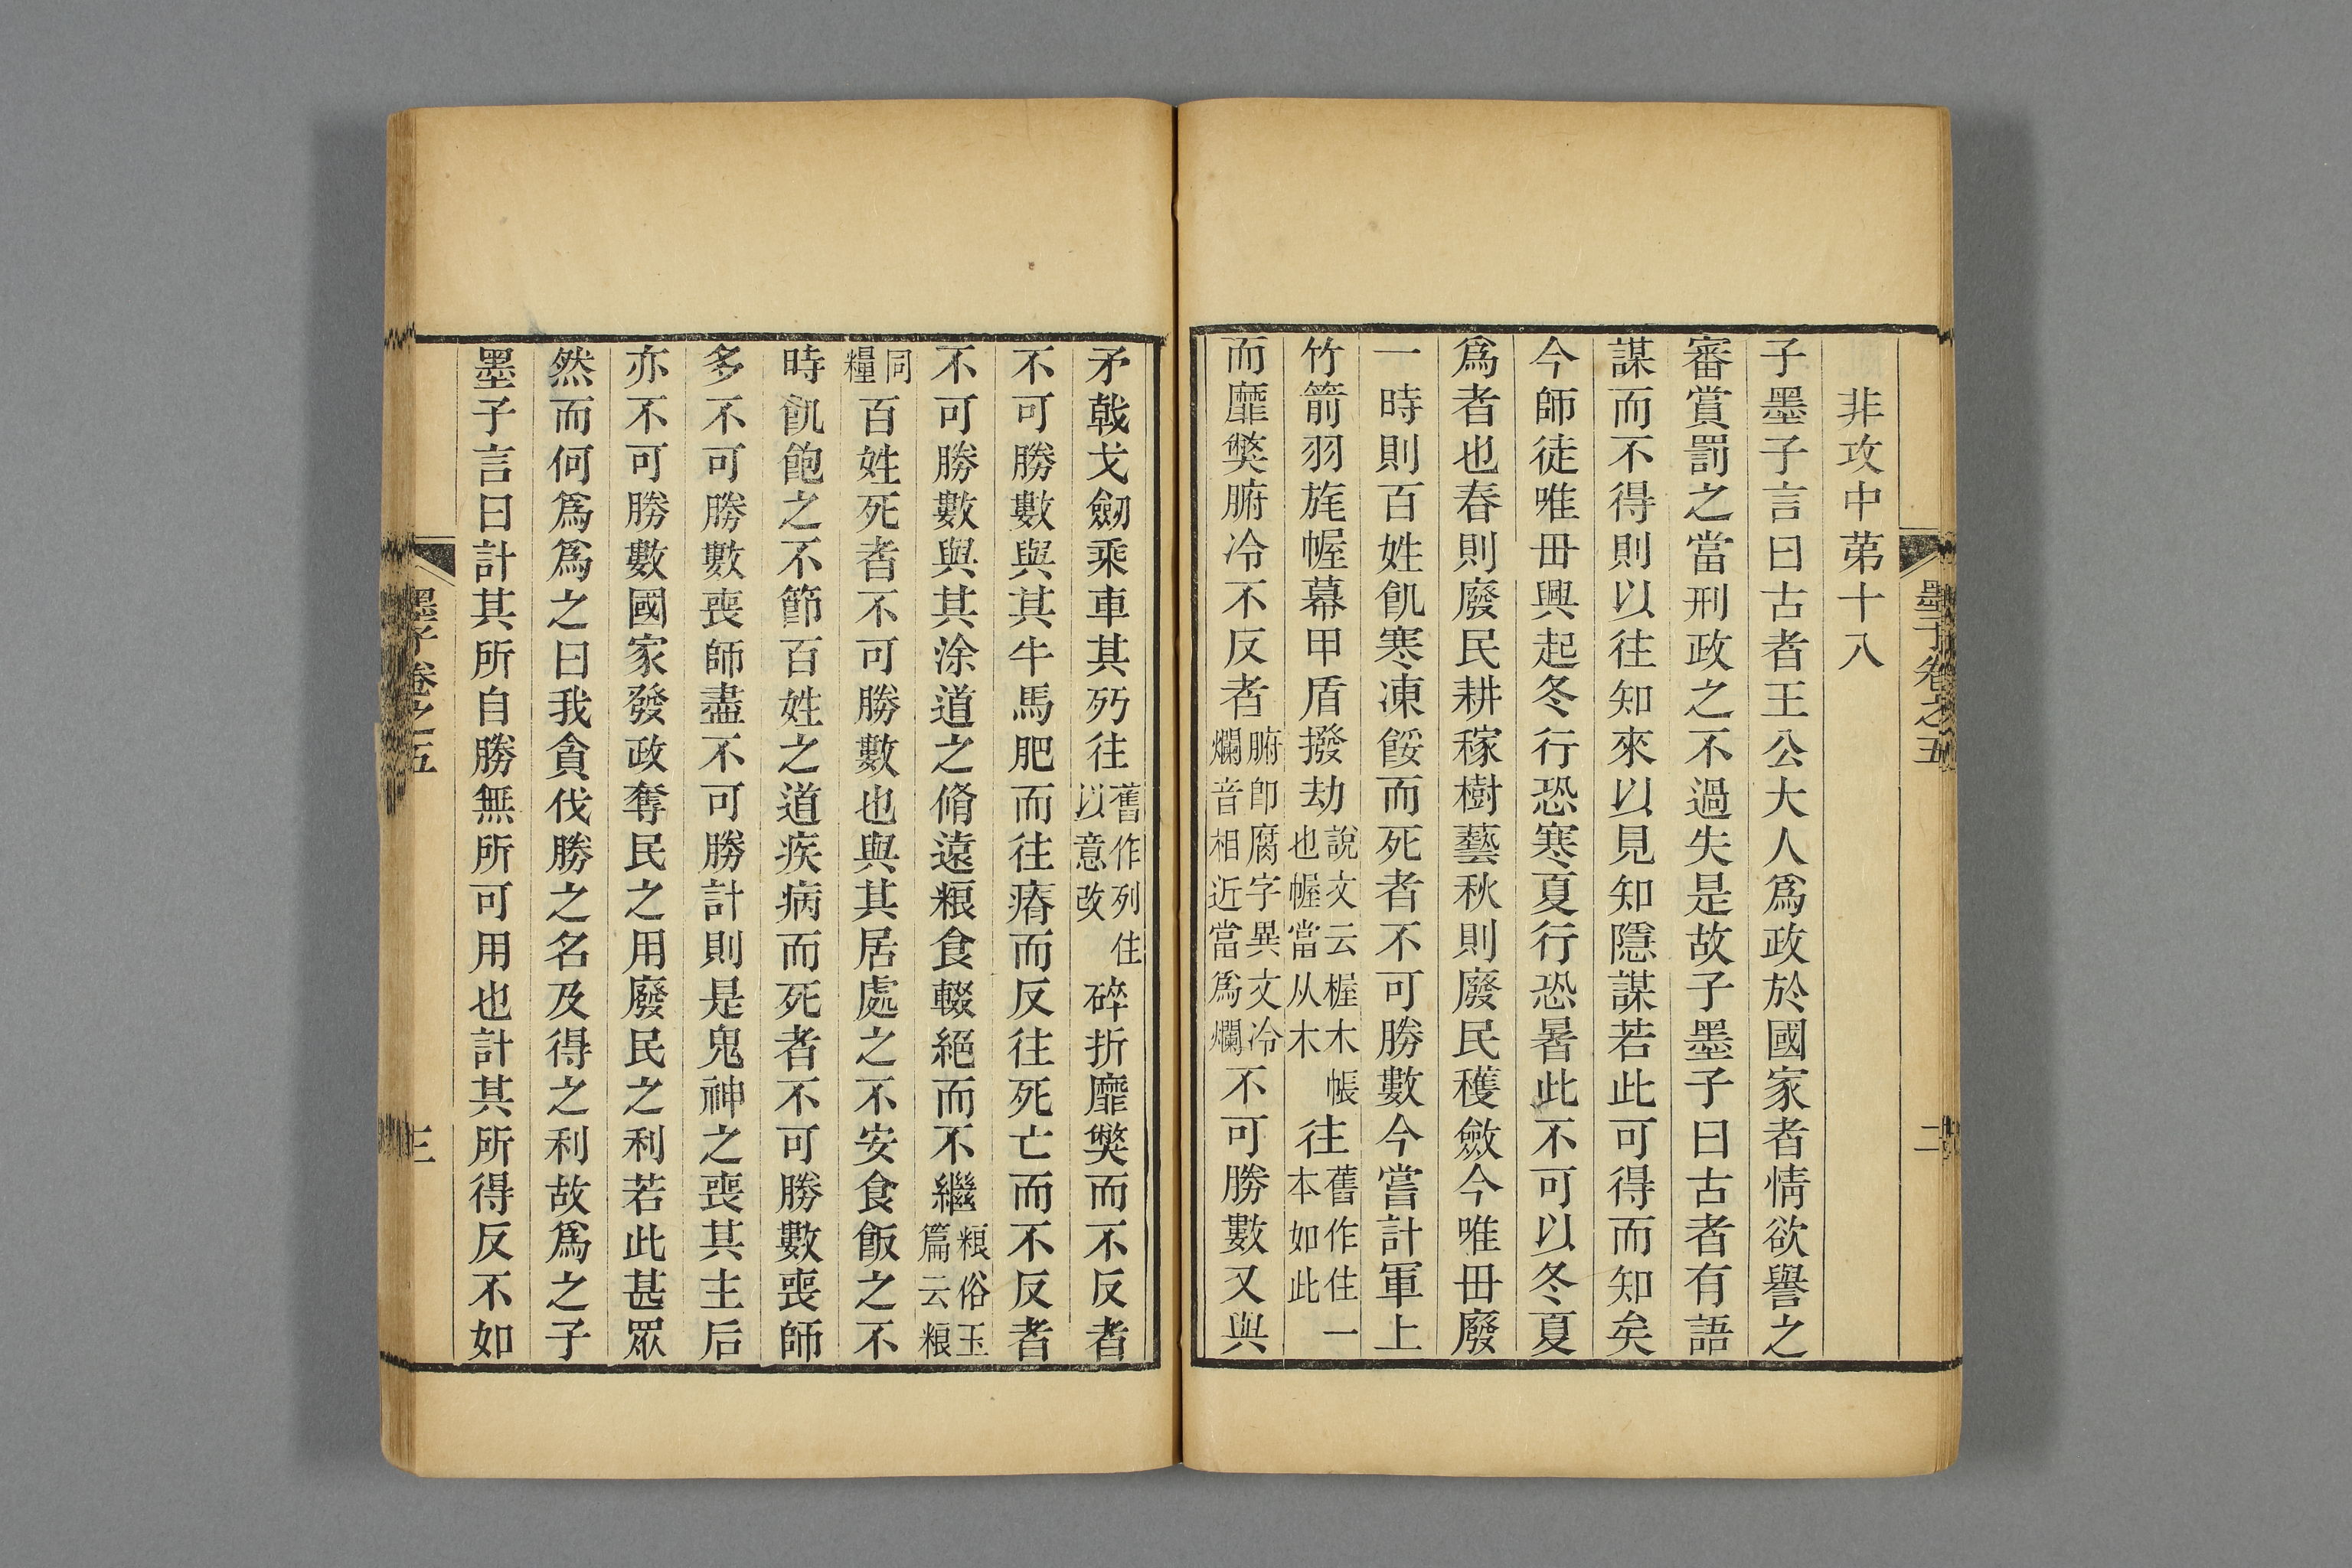 墨子卷之五
二
非攻中苐十八
子墨子言曰古者王公大人爲政於國家者情欲譽之
審賞罰之當刑政之不過失是故子墨子曰古者有語
謀而不得則以往知來以見知隱謀若此可得而知矣
今師徒唯毌興起冬行恐寒夏行恐暑此不可以冬夏
爲者也春則廢民耕稼樹藝秋則廢民穫斂今唯毌廢
一時則百姓飢寒凍餒而死者不可勝數今嘗計軍上
竹箭羽旄幄幕甲盾撥劫說文云楃木帳也幄當从木往舊作住一本如此
而靡獘腑冷不反者腑卽腐字異文冷爛音相近當爲爛不可勝數又與
矛戟戈劒乘車其列往舊作列住以意改碎折靡獘而不反者
不可勝數與其牛馬肥而往瘠而反往死亡而不反者
不可勝數與其涂道之脩遠粮食輟絕而不繼粮俗玉篇云粮
同糧百姓死者不可勝數也與其居處之不安食飯之不
時飢飽之不節百姓之道疾病而死者不可勝數喪師
多不可勝數喪師盡不可勝計則是鬼神之喪其主后
亦不可勝數國家發政奪民之用廢民之利若此甚眾
然而何爲爲之曰我貪伐勝之名及得之利故爲之子
墨子言曰計其所自勝無所可用也計其所得反不如
墨子卷之五
三